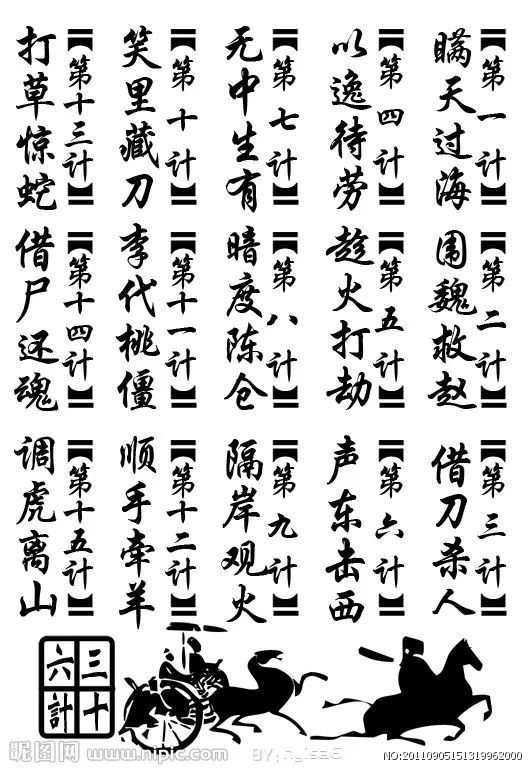 第一计
瞒天过海
第二计
围魏救赵
第三计
借刀杀人
第四计
以逸待劳
第五计
趁火打劫
第六计
声东击西
第七计
无中生有
第八计
暗度陈仓
第九计
隔岸观火
第十计
笑里藏刀
第十一计
李代桃僵
第十二计
顺手牵羊
第十三计
打草惊蛇
第十四计
借尸还魂
第十五计
调虎离山
三十
六計
昵图网
www.nipic.com
NO:20110905151319962000